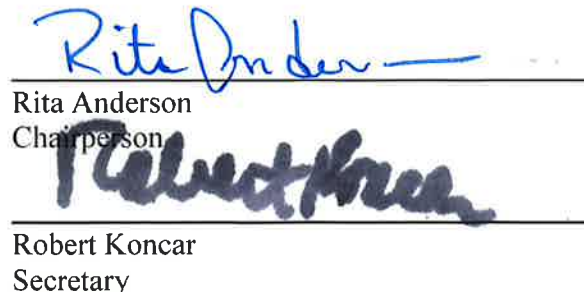 Rita Ander
Rita Anderson
Chairperson
Robert Koncar
Robert Koncar
Secretary